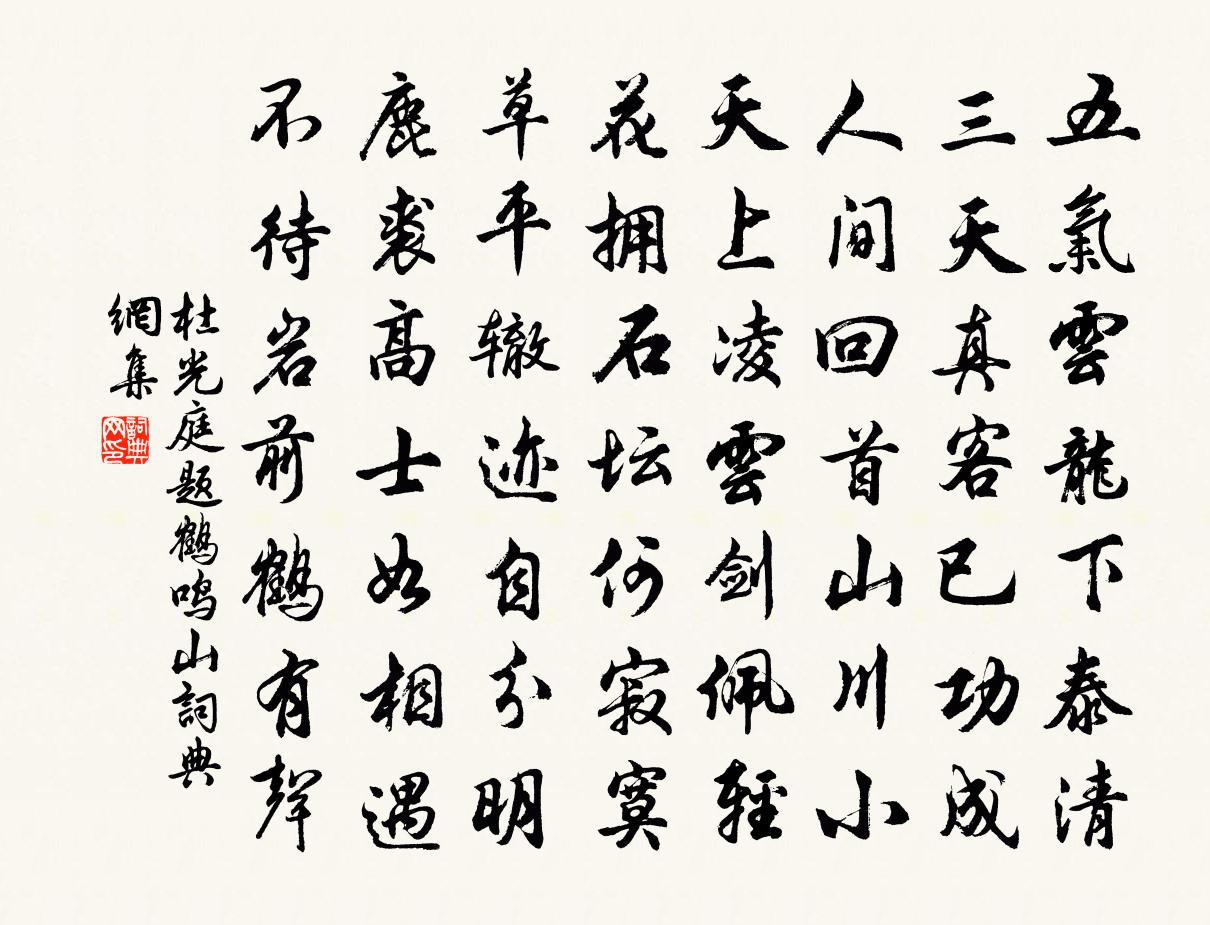 五氣雲龍下泰清
三天真客已功成
人间回首山川小
天上凌雲剑佩輕
花拥石坛何寂寞
草平辙迹自分明
鹿裘高士如相遇
不待岩前鶴有聲
杜光庭题鶴鸣山詞典
網集
詞典
网印